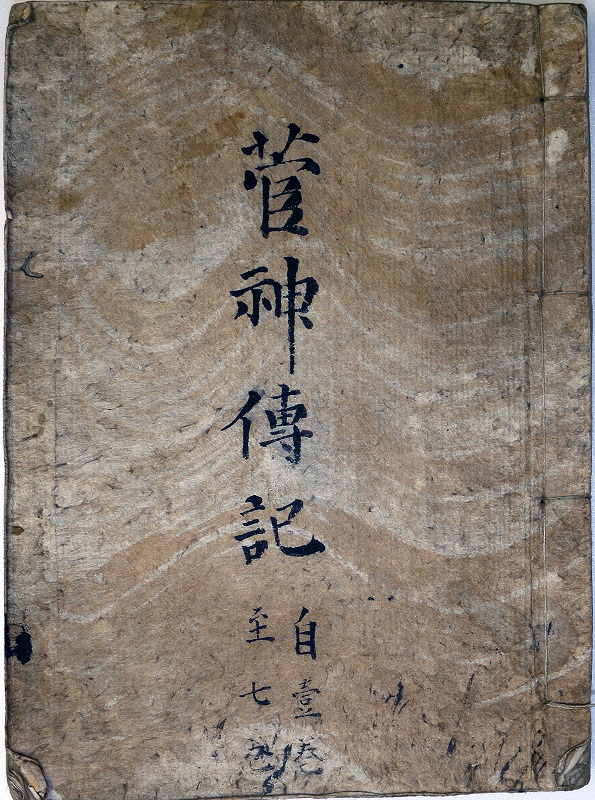 菅神傳記
自壹巻
至七巻